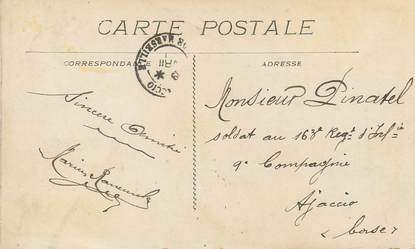 CARTE POSTALE
CORRESPONDANCE
ADRESSE
Sincère Amitié
Marius
Monsieur Pinatel
soldat au 163e Regt d'Infie
9e Compagnie
Ajaccio
(Corse)